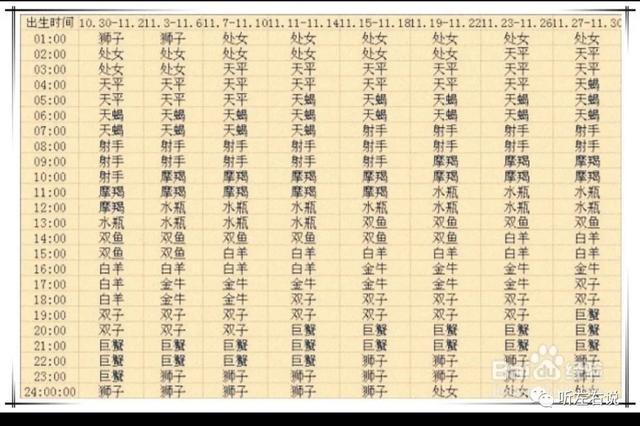 出生时间 10.30-11.2 11.3-11.6 11.7-11.10 11.11-11.14 11.15-11.18 11.19-11.22 11.23-11.26 11.27-11.30
01:00 狮子 狮子 处女 处女 处女 处女 处女 处女
02:00 处女 处女 处女 处女 处女 处女 天平 天平
03:00 处女 处女 天平 天平 天平 天平 天平 天平
04:00 天平 天平 天平 天平 天平 天平 天平 天蝎
05:00 天平 天平 天平 天蝎 天蝎 天蝎 天蝎 天蝎
06:00 天蝎 天蝎 天蝎 天蝎 天蝎 天蝎 天蝎 天蝎
07:00 天蝎 天蝎 天蝎 天蝎 射手 射手 射手 射手
08:00 射手 射手 射手 射手 射手 射手 射手 射手
09:00 射手 射手 射手 射手 射手 摩羯 摩羯 摩羯
10:00 射手 摩羯 摩羯 摩羯 摩羯 摩羯 摩羯 摩羯
11:00 摩羯 摩羯 摩羯 摩羯 摩羯 水瓶 水瓶 水瓶
12:00 摩羯 水瓶 水瓶 水瓶 水瓶 水瓶 水瓶 水瓶
13:00 水瓶 水瓶 水瓶 水瓶 双鱼 双鱼 双鱼 双鱼
14:00 双鱼 双鱼 双鱼 双鱼 双鱼 双鱼 白羊 白羊
15:00 双鱼 双鱼 白羊 白羊 白羊 白羊 白羊 白羊
16:00 白羊 白羊 白羊 白羊 金牛 金牛 金牛 金牛
17:00 白羊 金牛 金牛 金牛 金牛 金牛 金牛 双子
18:00 白羊 金牛 金牛 双子 双子 双子 双子 双子
19:00 双子 双子 双子 双子 双子 双子 双子 巨蟹
20:00 双子 双子 双子 巨蟹 巨蟹 巨蟹 巨蟹 巨蟹
21:00 巨蟹 巨蟹 巨蟹 巨蟹 巨蟹 巨蟹 巨蟹 巨蟹
22:00 巨蟹 巨蟹 巨蟹 巨蟹 狮子 狮子 狮子 狮子
23:00 巨蟹 狮子 狮子 狮子 狮子 狮子
24:00:00 狮子 狮子 狮子 狮子 狮子 处女 处女 处女
听左右说